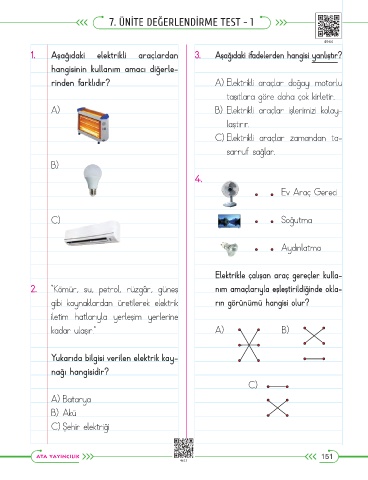 7. ÜNİTE DEĞERLENDİRME TEST - 1
1. Aşağıdaki elektrikli araçlardan
hangisinin kullanım amacı diğerle-
rinden farklıdır?
A)
B)
C)
2. "Kömür, su, petrol, rüzgâr, güneş
gibi kaynaklardan üretilerek elektrik
iletim hatlarıyla yerleşim yerlerine
kadar ulaşır."
Yukarıda bilgisi verilen elektrik kay-
nağı hangisidir?
A) Batarya
B) Akü
C) Şehir elektriği
3. Aşağıdaki ifadelerden hangisi yanlıştır?
A) Elektrikli araçlar doğayı motorlu
taşıtlara göre daha çok kirletir.
B) Elektrikli araçlar işlerimizi kolay-
laştırır.
C) Elektrikli araçlar zamandan ta-
sarruf sağlar.
4.
Ev Araç Gereci
Soğutma
Aydınlatma
Elektrikle çalışan araç gereçler kulla-
nım amaçlarıyla eşleştirildiğinde okla-
rın görünümü hangisi olur?
A)
B)
C)
ATA YAYINCILIK
151